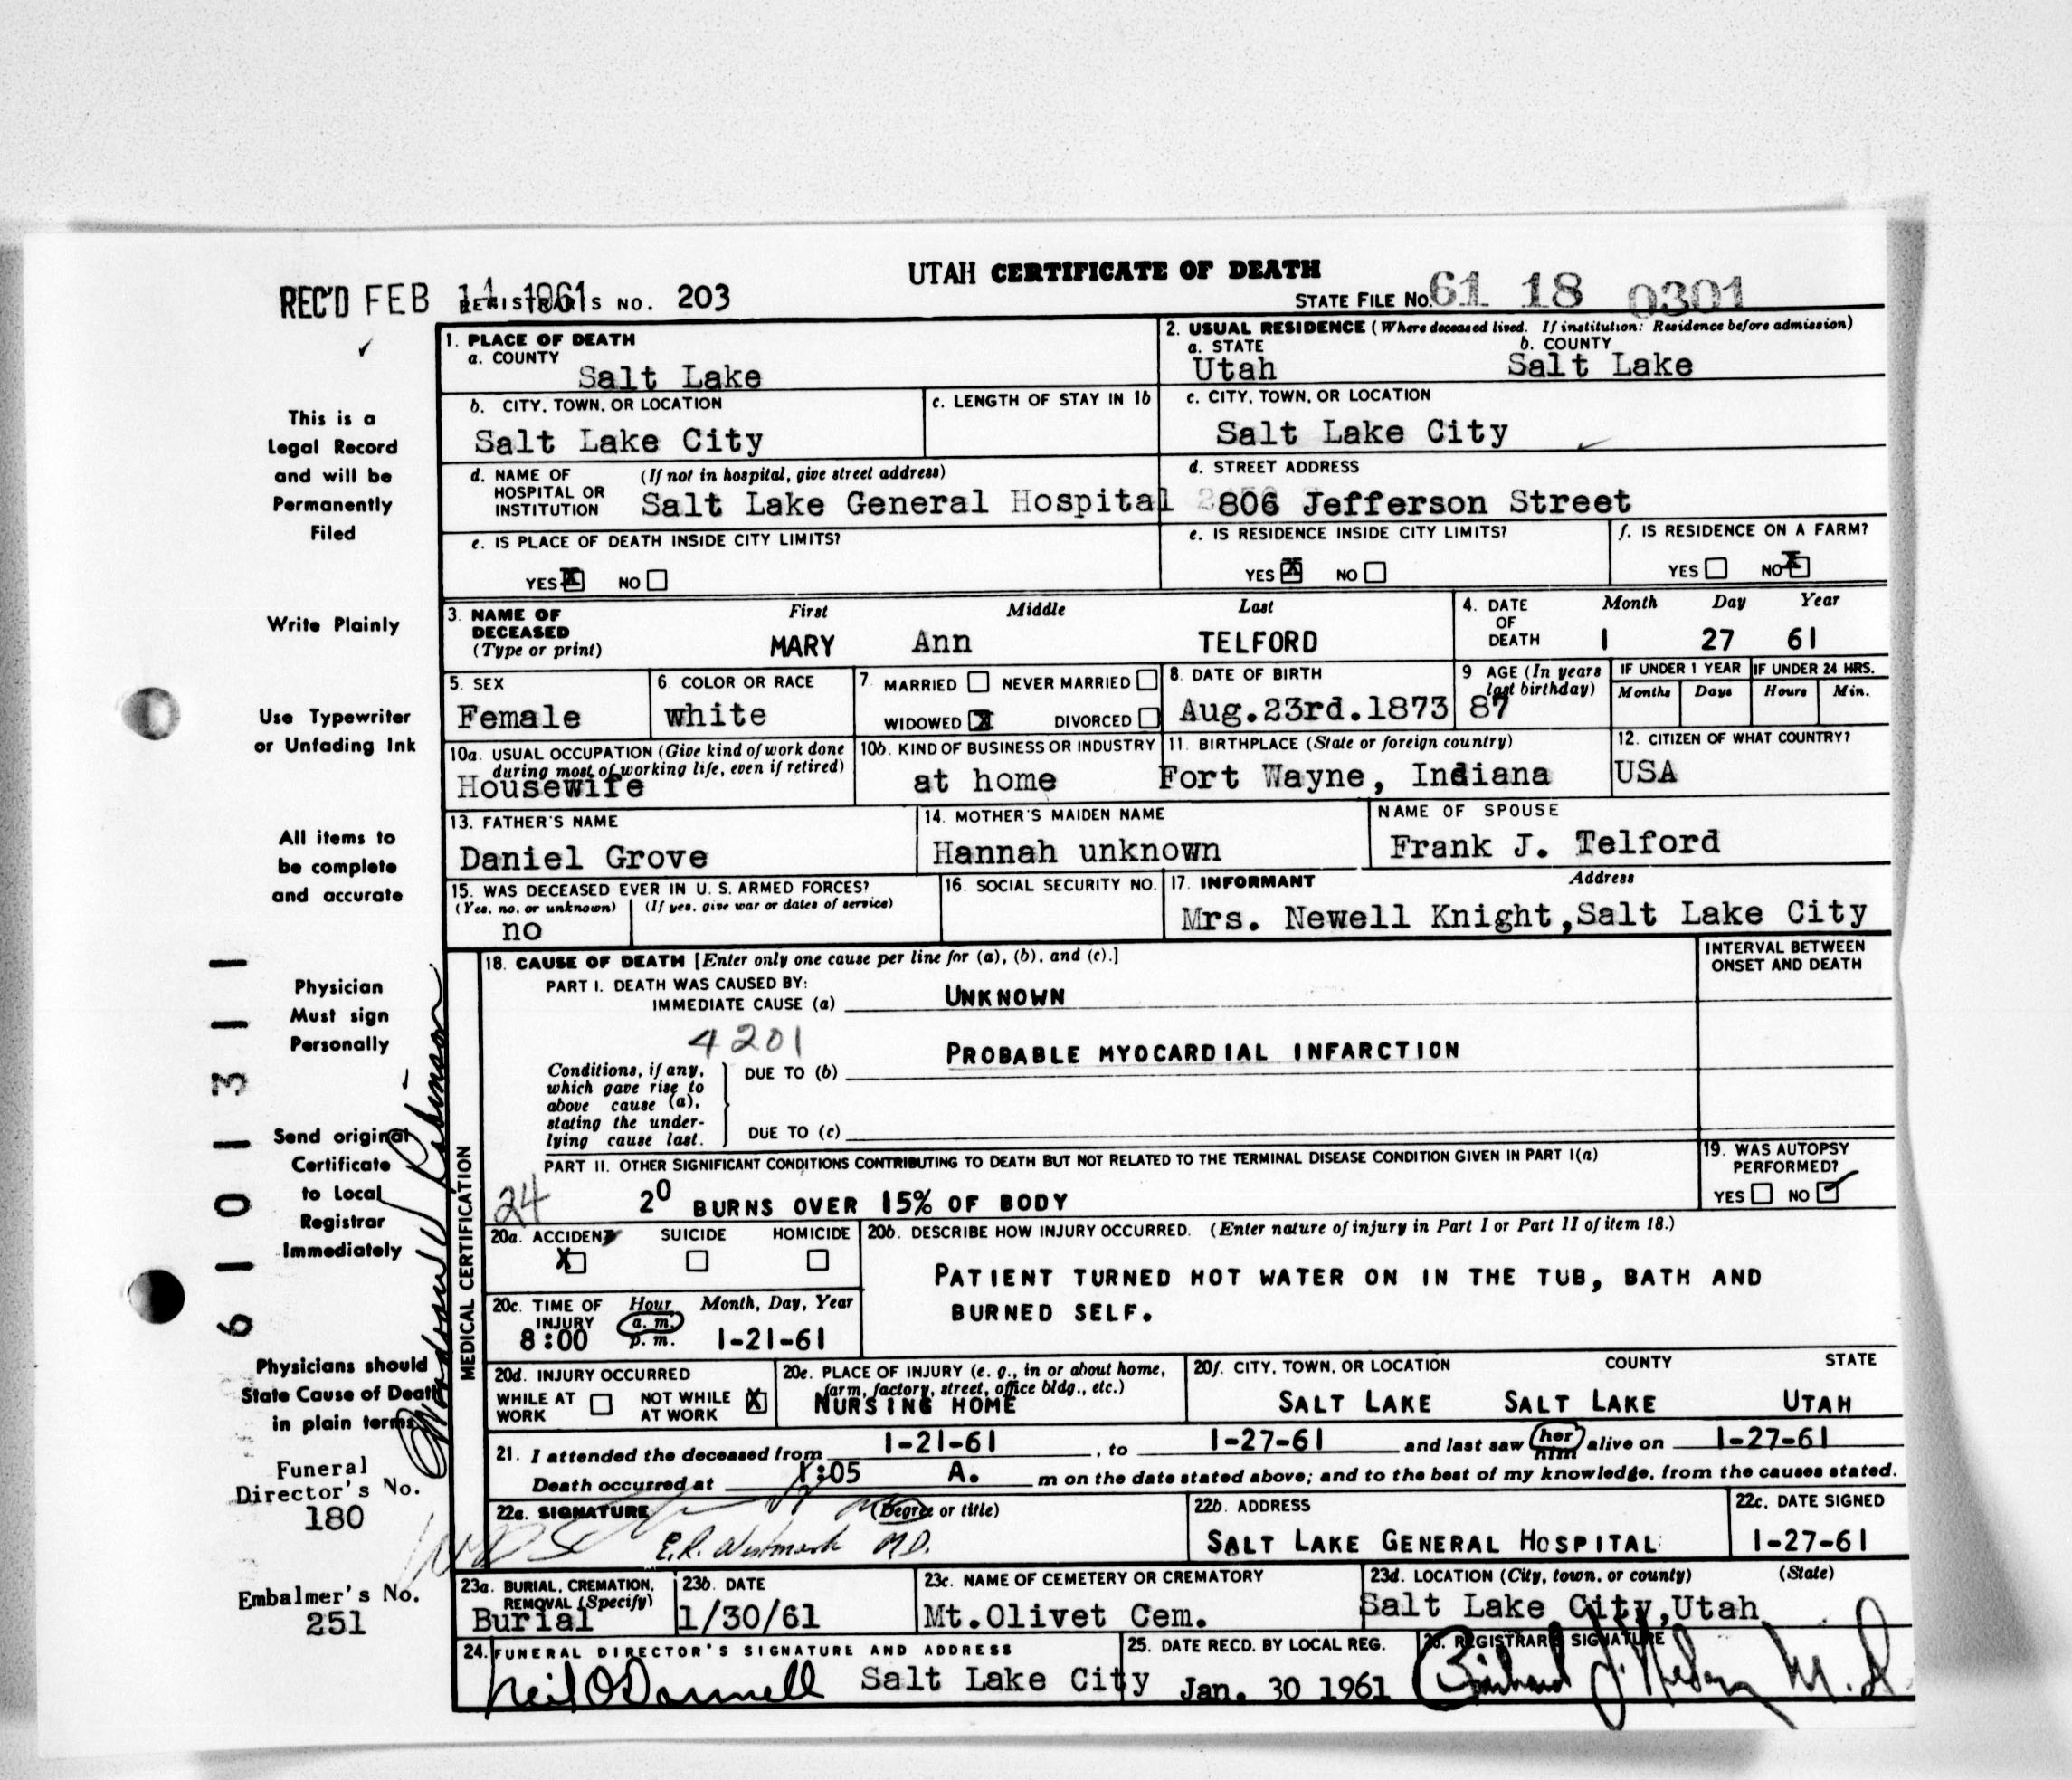 UTAH CERTIFICATE OF DEATH
REC'D FEB 14 1961 REGISTRAR'S NO. 203
STATE FILE No. 61 18 0301
This is a
Legal Record
and will be
Permanently
Filed
Write Plainly
Use Typewriter
or Unfading Ink
All items to
be complete
and accurate
Physician
Must sign
Personally
Send original
Certificate
to Local
Registrar
Immediately
Physicians should
State Cause of Death
in plain terms
Funeral
Director's No.
180
Embalmer's No.
251
6 1 0 1 3 1 1
Robinson
1. PLACE OF DEATH
a. COUNTY
Salt Lake
2. USUAL RESIDENCE (Where deceased lived. If institution: Residence before admission)
a. STATE b. COUNTY
Utah Salt Lake
b. CITY, TOWN, OR LOCATION
Salt Lake City
c. LENGTH OF STAY IN 1b
c. CITY, TOWN, OR LOCATION
Salt Lake City
d. NAME OF HOSPITAL OR INSTITUTION (If not in hospital, give street address)
Salt Lake General Hospital
d. STREET ADDRESS
806 Jefferson Street
e. IS PLACE OF DEATH INSIDE CITY LIMITS?
YES X NO
e. IS RESIDENCE INSIDE CITY LIMITS?
YES X NO
f. IS RESIDENCE ON A FARM?
YES NO X
3. NAME OF DECEASED (Type or print)
First Middle Last
MARY Ann TELFORD
4. DATE OF DEATH
Month Day Year
1 27 61
5. SEX
Female
6. COLOR OR RACE
white
7. MARRIED NEVER MARRIED
WIDOWED X DIVORCED
8. DATE OF BIRTH
Aug.23rd.1873
9 AGE (In years last birthday)
87
IF UNDER 1 YEAR IF UNDER 24 HRS.
Months Days Hours Min.
10a. USUAL OCCUPATION (Give kind of work done during most of working life, even if retired)
Housewife
10b. KIND OF BUSINESS OR INDUSTRY
at home
11. BIRTHPLACE (State or foreign country)
Fort Wayne, Indiana
12. CITIZEN OF WHAT COUNTRY?
USA
13. FATHER'S NAME
Daniel Grove
14. MOTHER'S MAIDEN NAME
Hannah unknown
NAME OF SPOUSE
Frank J. Telford
15. WAS DECEASED EVER IN U. S. ARMED FORCES?
(Yes, no, or unknown) (If yes, give war or dates of service)
no
16. SOCIAL SECURITY NO.
17. INFORMANT Address
Mrs. Newell Knight,Salt Lake City
MEDICAL CERTIFICATION
18. CAUSE OF DEATH [Enter only one cause per line for (a), (b), and (c).]
INTERVAL BETWEEN ONSET AND DEATH
PART I. DEATH WAS CAUSED BY:
IMMEDIATE CAUSE (a) UNKNOWN
4201
Conditions, if any, which gave rise to above cause (a), stating the underlying cause last.
DUE TO (b) PROBABLE MYOCARDIAL INFARCTION
DUE TO (c)
PART II. OTHER SIGNIFICANT CONDITIONS CONTRIBUTING TO DEATH BUT NOT RELATED TO THE TERMINAL DISEASE CONDITION GIVEN IN PART I(a)
24 2⁰ BURNS OVER 15% OF BODY
19. WAS AUTOPSY PERFORMED?
YES NO ✓
20a. ACCIDENT SUICIDE HOMICIDE
X
20b. DESCRIBE HOW INJURY OCCURRED. (Enter nature of injury in Part I or Part II of item 18.)
PATIENT TURNED HOT WATER ON IN THE TUB, BATH AND
BURNED SELF.
20c. TIME OF INJURY Hour Month, Day, Year
8:00 a. m. p. m. 1-21-61
20d. INJURY OCCURRED
WHILE AT WORK NOT WHILE AT WORK X
20e. PLACE OF INJURY (e. g., in or about home, farm, factory, street, office bldg., etc.)
NURSING HOME
20f. CITY, TOWN, OR LOCATION COUNTY STATE
SALT LAKE SALT LAKE UTAH
21. I attended the deceased from 1-21-61, to 1-27-61 and last saw her him alive on 1-27-61
Death occurred at 1:05 A. m on the date stated above; and to the best of my knowledge, from the causes stated.
22a. SIGNATURE (Degree or title)
E.R. Westmark M.D.
22b. ADDRESS
SALT LAKE GENERAL HOSPITAL
22c. DATE SIGNED
1-27-61
23a. BURIAL, CREMATION, REMOVAL (Specify)
Burial
23b. DATE
1/30/61
23c. NAME OF CEMETERY OR CREMATORY
Mt.Olivet Cem.
23d. LOCATION (City, town, or county) (State)
Salt Lake City,Utah
24. FUNERAL DIRECTOR'S SIGNATURE AND ADDRESS
Neil O'Donnell Salt Lake City
25. DATE RECD. BY LOCAL REG.
Jan. 30 1961
26. REGISTRAR'S SIGNATURE
M.D.